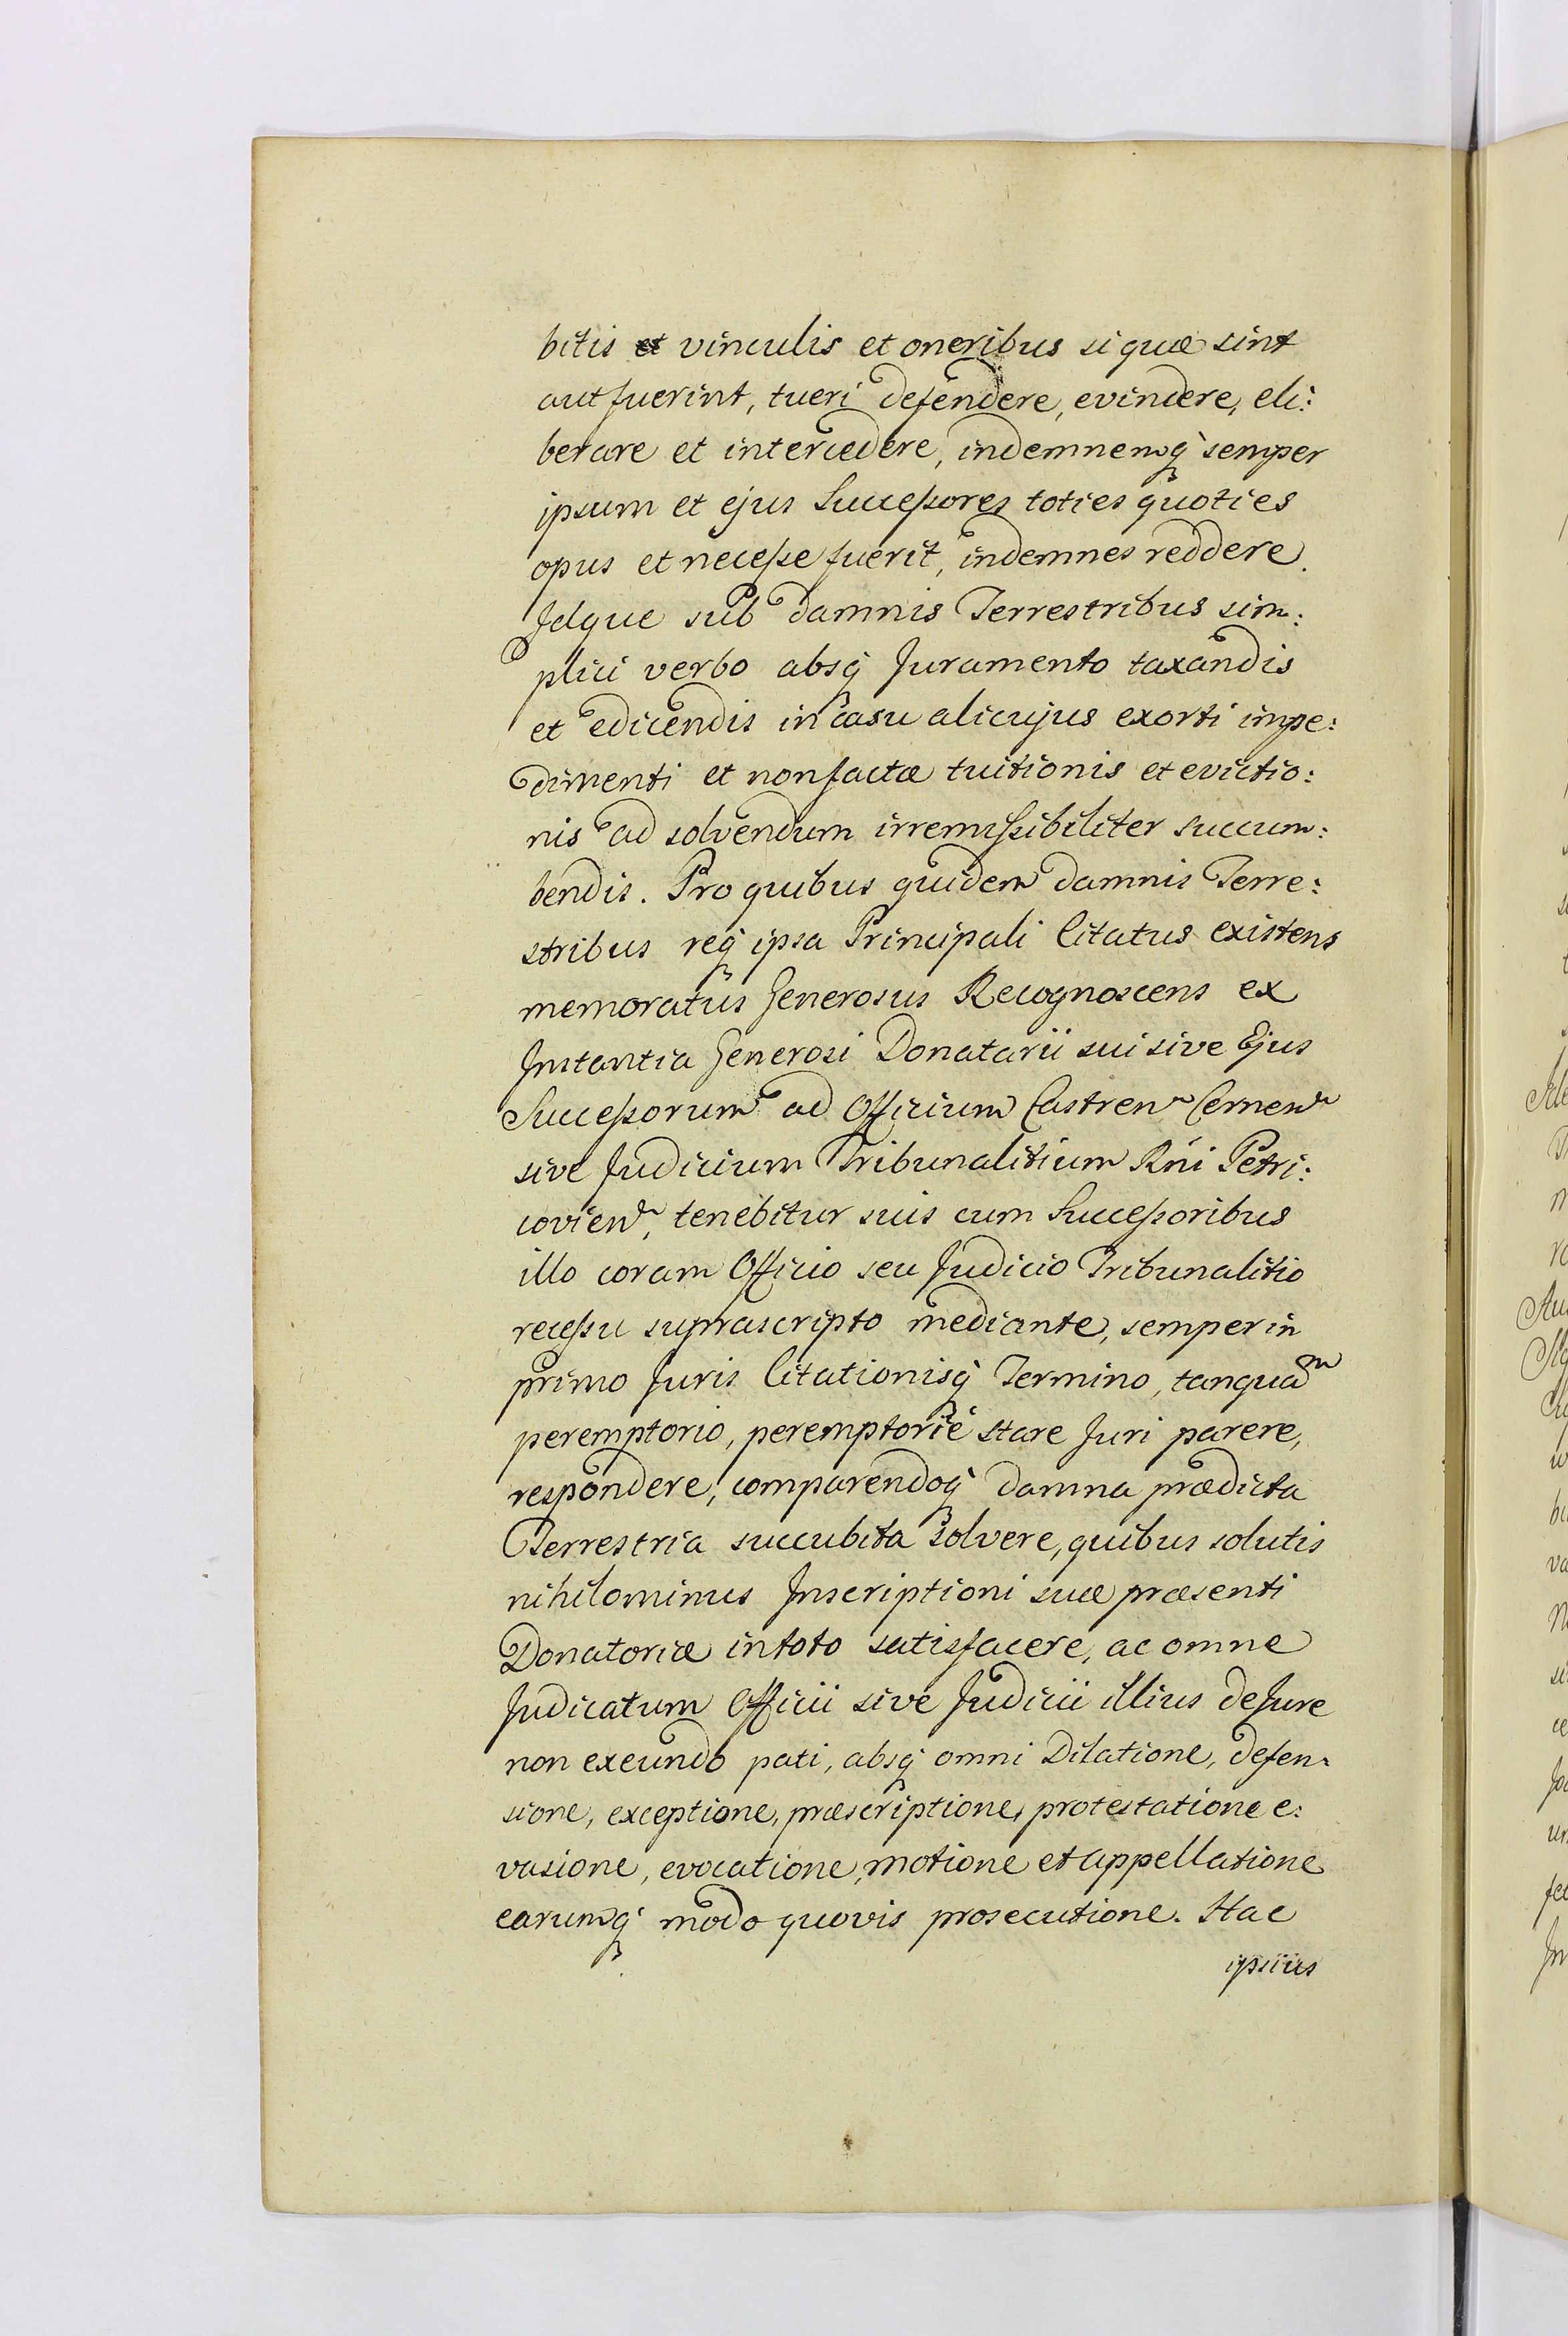 bitis et vinculis et oneribus si quæ sint
aut fuerint, tueri defendere, evincere, eli:
berare et intercedere, indemnemq́ semper
ipsum et ejus Succeßores toties quoties
opus et neceße fuerit, indemnes reddere.
Idque sub damnis Terrestribus sim:
plici verbo absq́ Juramento taxandis
et edicendis in casu alicujus exorti impe:
dimenti et non factæ tuitionis et evictio:
nis ad solvendum irremißibiliter succum:
bendis. Pro quibus quidem damnis Terre:
stribus req́ ipsa Principali Citatus existens
memoratus Generosus Recognoscens ex
Instantia Generosi Donatarii sui sive Ejus
Succeßorum ad Officium Castren Cernen
sive Judicium Tribunalitium Rńi Petri:
covien, tenebitur suis cum Succeßoribus
illo coram Officio seu Judicio Tribunalitio
receßu suprascripto mediante, semper in
primo Juris Citationisq́ Termino, tanquam
peremptorio, peremptorié stare Juri parere,
respondere, comparendoq́ damna prædicta
Terrestria succubita solvere, quibus solutis
nihilominus Inscriptioni suæ præsenti
Donatoriæ in toto satisfacere, ac omne
Judicatum Officii sive Judicii illius de Jure
non exeundo pati, absq́ omni Dilatione, defen:
sione, exceptione, præscriptione, protestatione e:
vasione, evocatione, motione et appellatione
earumq́ modo quovis prosecutione. Hac
ipsius